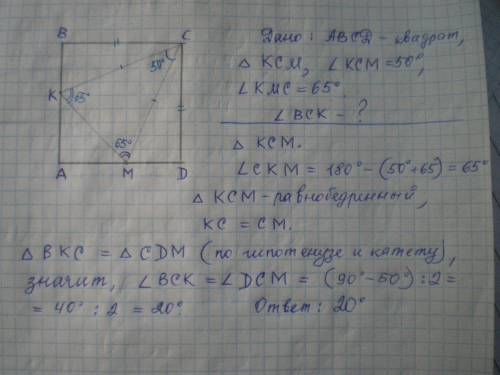 B
C
K
50°
65°
65°
A
M
D
Дано: ABCD - квадрат,
△ KCM, ∠KCM = 50°,
∠KMC = 65°.
∠BCK - ?
△ KCM.
∠CKM = 180° - (50°+65) = 65°
△ KCM - равнобедренный,
KC = CM.
△ BKC = △ CDM (по гипотенузе и катету),
значит, ∠BCK = ∠DCM = (90° - 50°) : 2 =
= 40° : 2 = 20°. Ответ: 20°